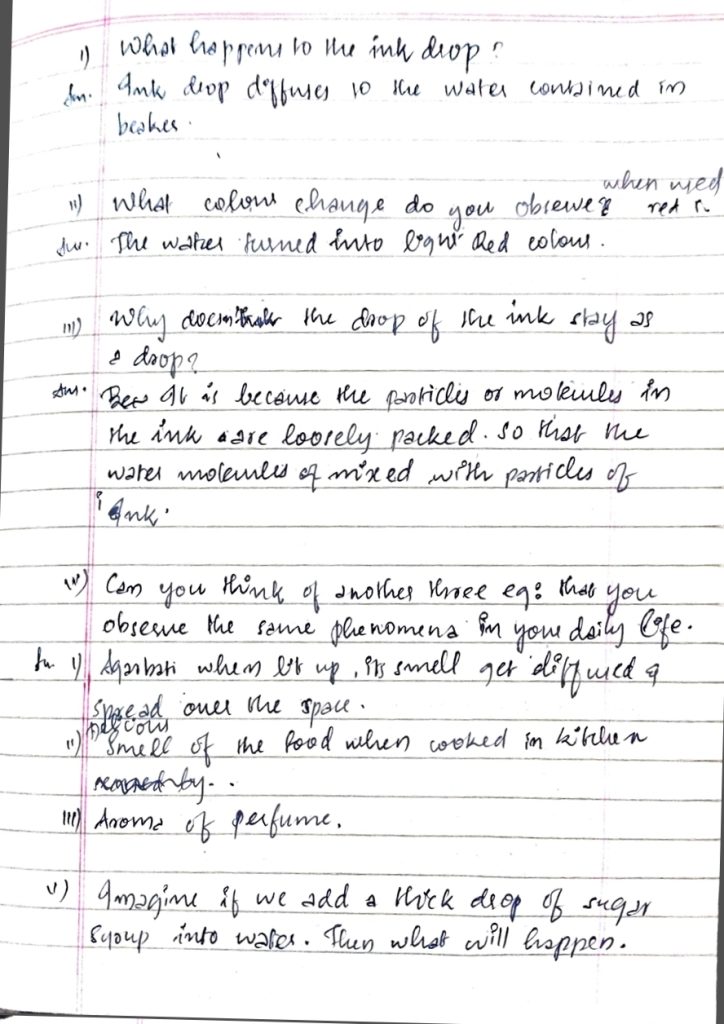 i) What happens to the ink drop?
Ans. Ink drop diffuses to the water contained in
beaker.
when used
ii) What colour change do you observe? red
Ans. The water turned into light Red colour.
iii) Why doesn't the drop of the ink stay as
a drop?
Ans. It is because the particles or molecules in
the ink are loosely packed. So that the
water molecules mixed with particles of
ink.
iv) Can you think of another three eg: that you
observe the same phenomena in your daily life.
Ans. i) Agarbati when lit up, its smell get diffused &
spread over the space.
ii) Smell of the food when cooked in kitchen
iii) Aroma of perfume.
v) Imagine if we add a thick drop of sugar
syoup into water. Then what will happen.